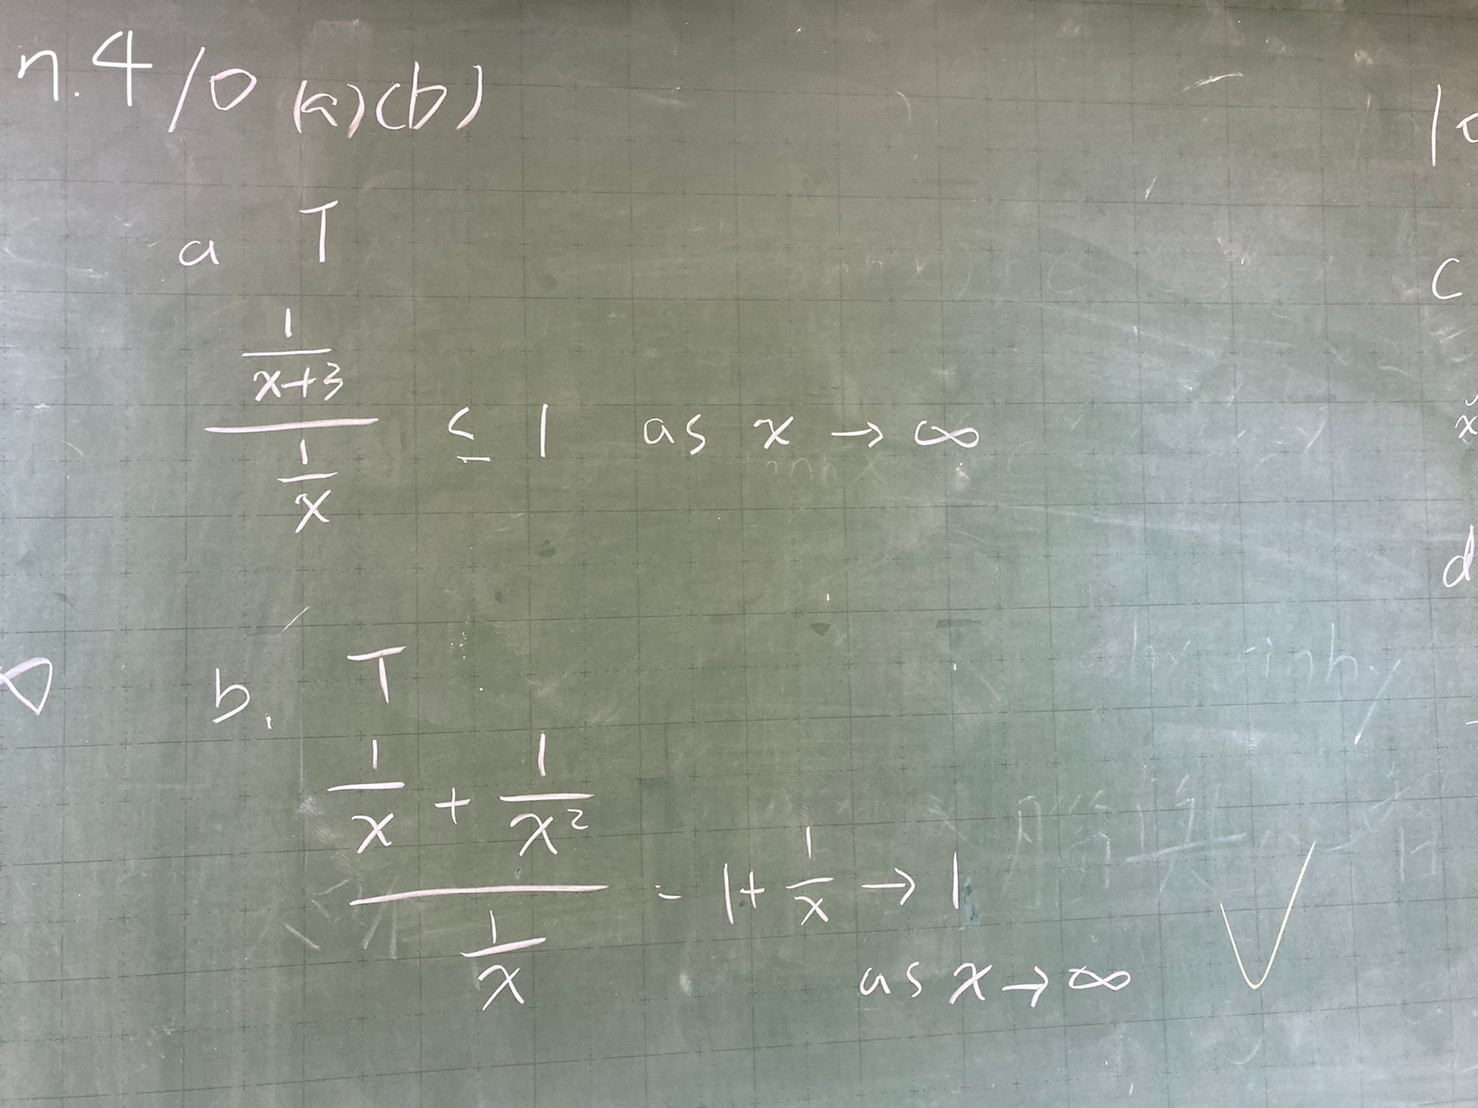 n.4 10 (a)(b)
a T
\frac{\frac{1}{x+3}}{\frac{1}{x}} ≤ 1 as x → ∞
b. T
\frac{\frac{1}{x} + \frac{1}{x^2}}{\frac{1}{x}} = 1 + \frac{1}{x} → 1
as x → ∞
c
d